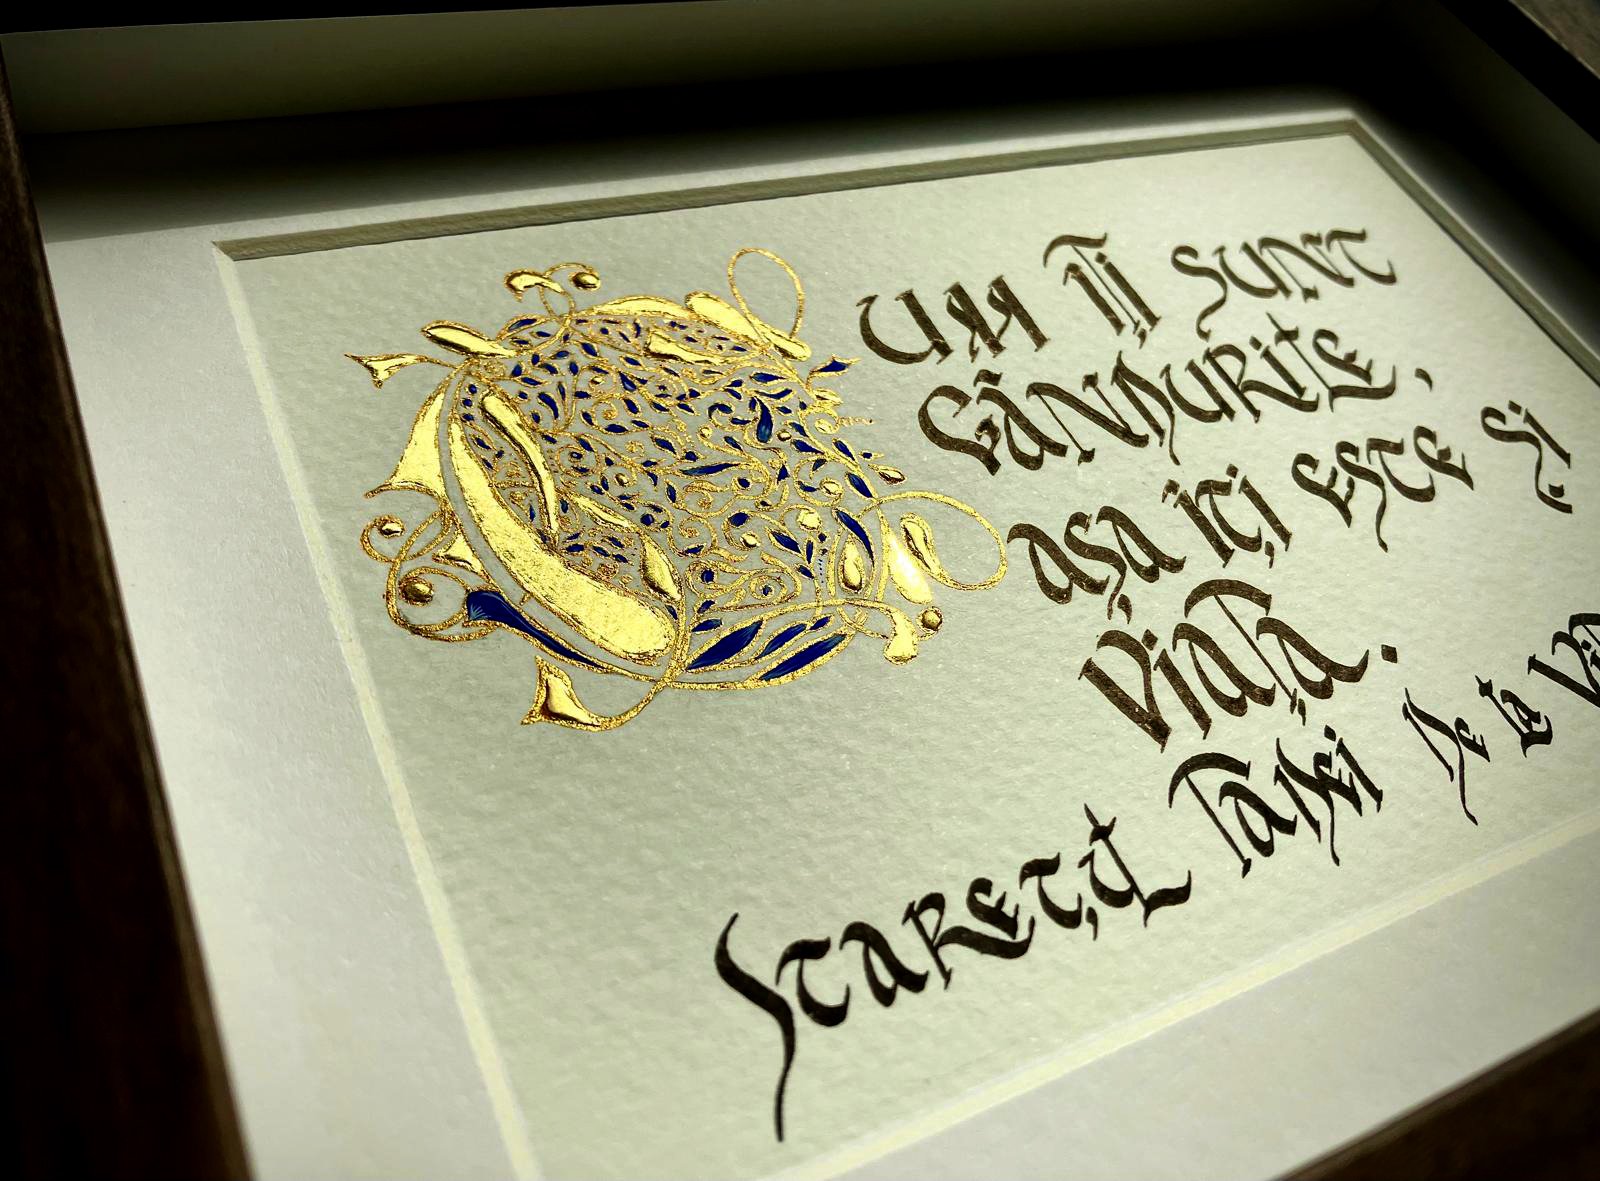 Cum îți sunt
gândurile,
așa îți este și
viața.
Starețul Tadei de la